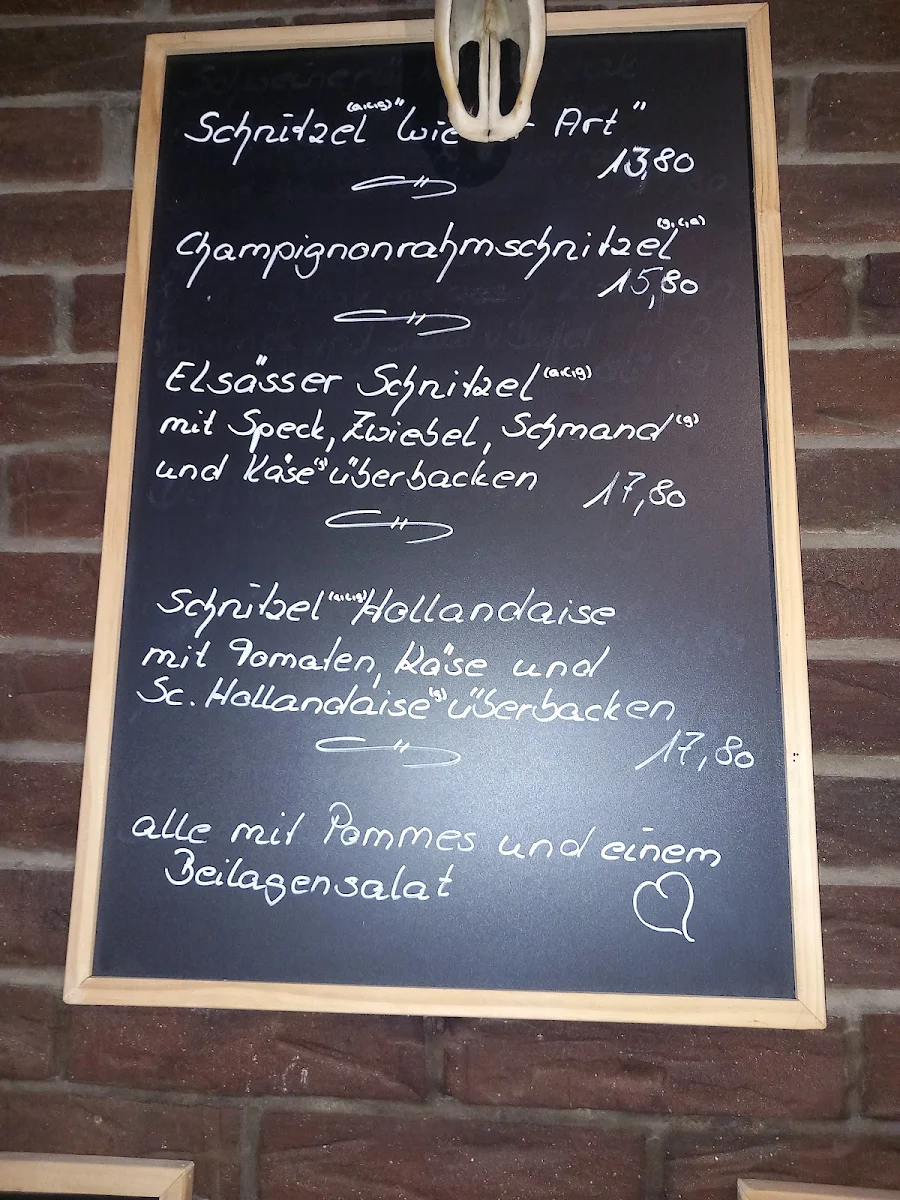 Schnitzel (a,c,g) "Wie Art"
13,80
Champignonrahmschnitzel (g,c,a)
15,80
Elsässer Schnitzel (a,c,g)
mit Speck, Zwiebel, Schmand (g)
und Käse (g) überbacken 17,80
Schnitzel (a,c,g) Hollandaise
mit Tomaten, Käse und
Sc. Hollandaise (g) überbacken
17,80
alle mit Pommes und einem
Beilagensalat